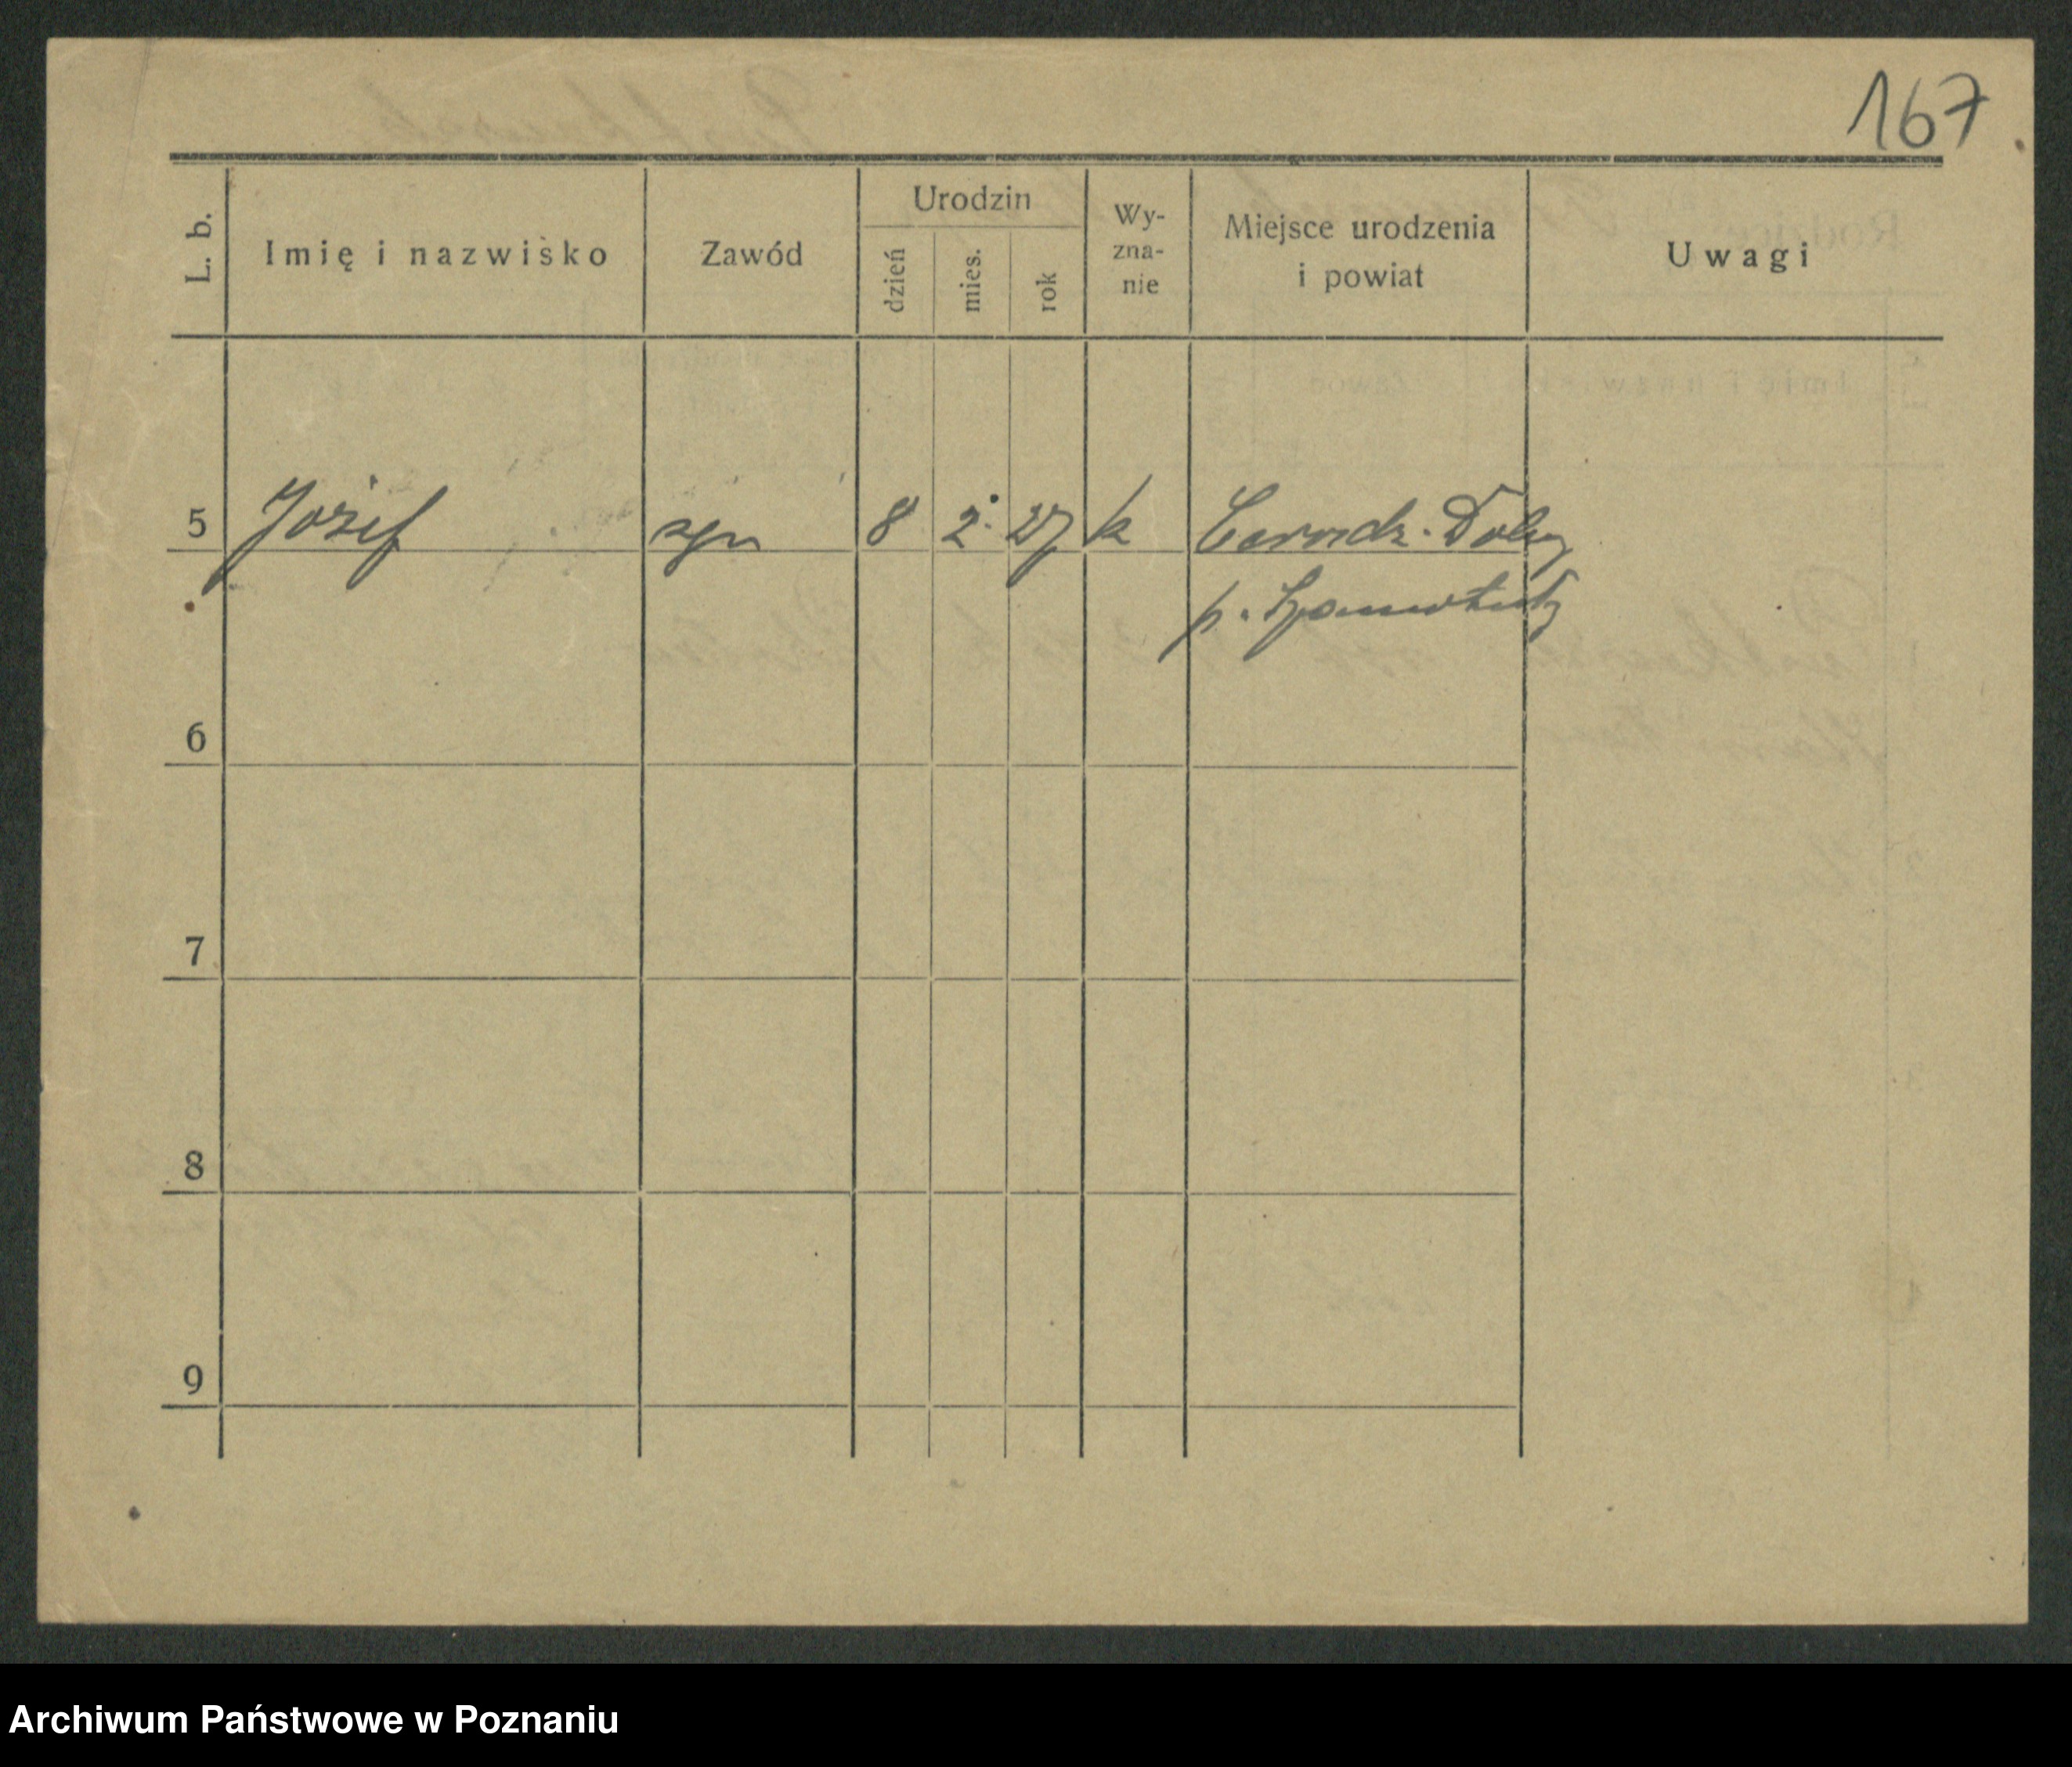 167
L. b.
Imię i nazwisko
Zawód
Urodzin
dzień
mies.
rok
Wy-
zna-
nie
Miejsce urodzenia
i powiat
Uwagi
5 Józef syn 8 2. 27 k Dolny
p. Szamotuły
6
7
8
9
Archiwum Państwowe w Poznaniu